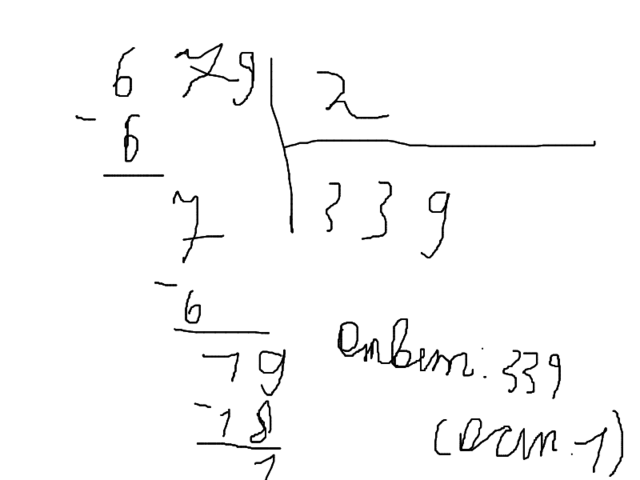 679 2
- 6
7 339
- 6
19
Ответ: 339
- 18
(ост. 1)
1